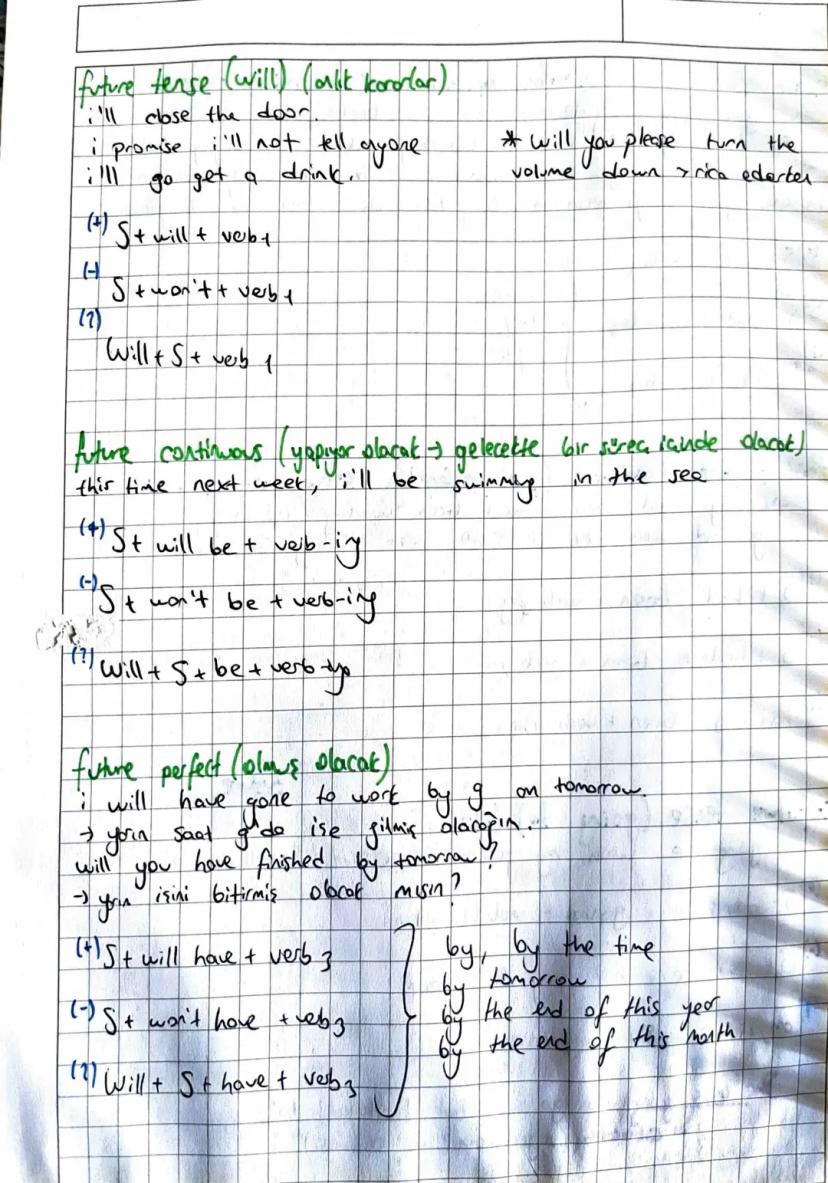 future tense (will) (anlık kararlar)
i'll close the door.
i promise i'll not tell anyone
i'll go get a drink.
* will you please turn the
volume down → rica ederken
(+) S + will + verb1
(-) S + won't + verb1
(?)
Will + S + verb 1
future continuous (yapıyor olacak → gelecekte bir süreç içinde olacak)
this time next week, i'll be swimming in the sea.
(+) S + will be + verb-ing
(-) S + won't be + verb-ing
(?) Will + S + be + verb-ing
future perfect (olmuş olacak)
i will have gone to work by 9 am tomorrow.
→ yarın saat 9'da işe gitmiş olacağım.
will you have finished by tomorrow?
→ yarın işini bitirmiş olacak mısın?
(+) S + will have + verb3
(-) S + won't have + verb3
(?) Will + S + have + verb3
by, by the time
by tomorrow
by the end of this year
by the end of this month